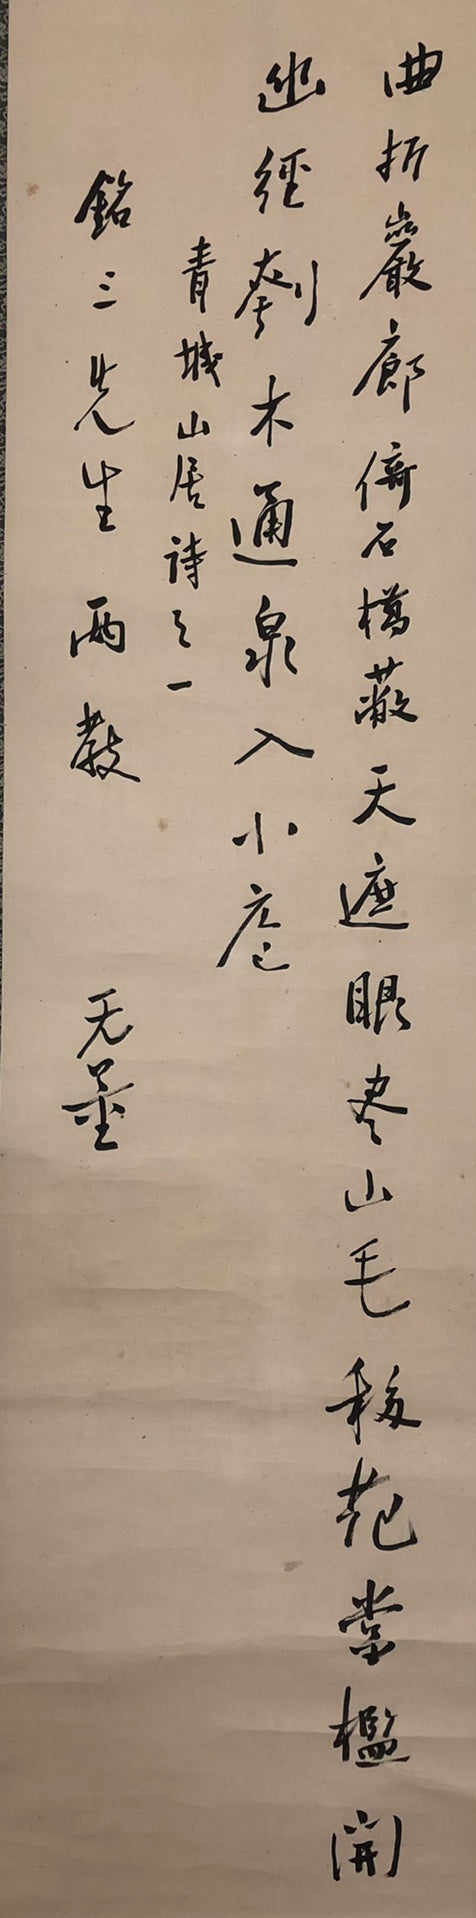 曲折巖廊倚石樽蔽天遮眼卷山毛移花當檻開
幽徑刳木通泉入小庖
青城山居詩之一
銘三先生兩教
无量